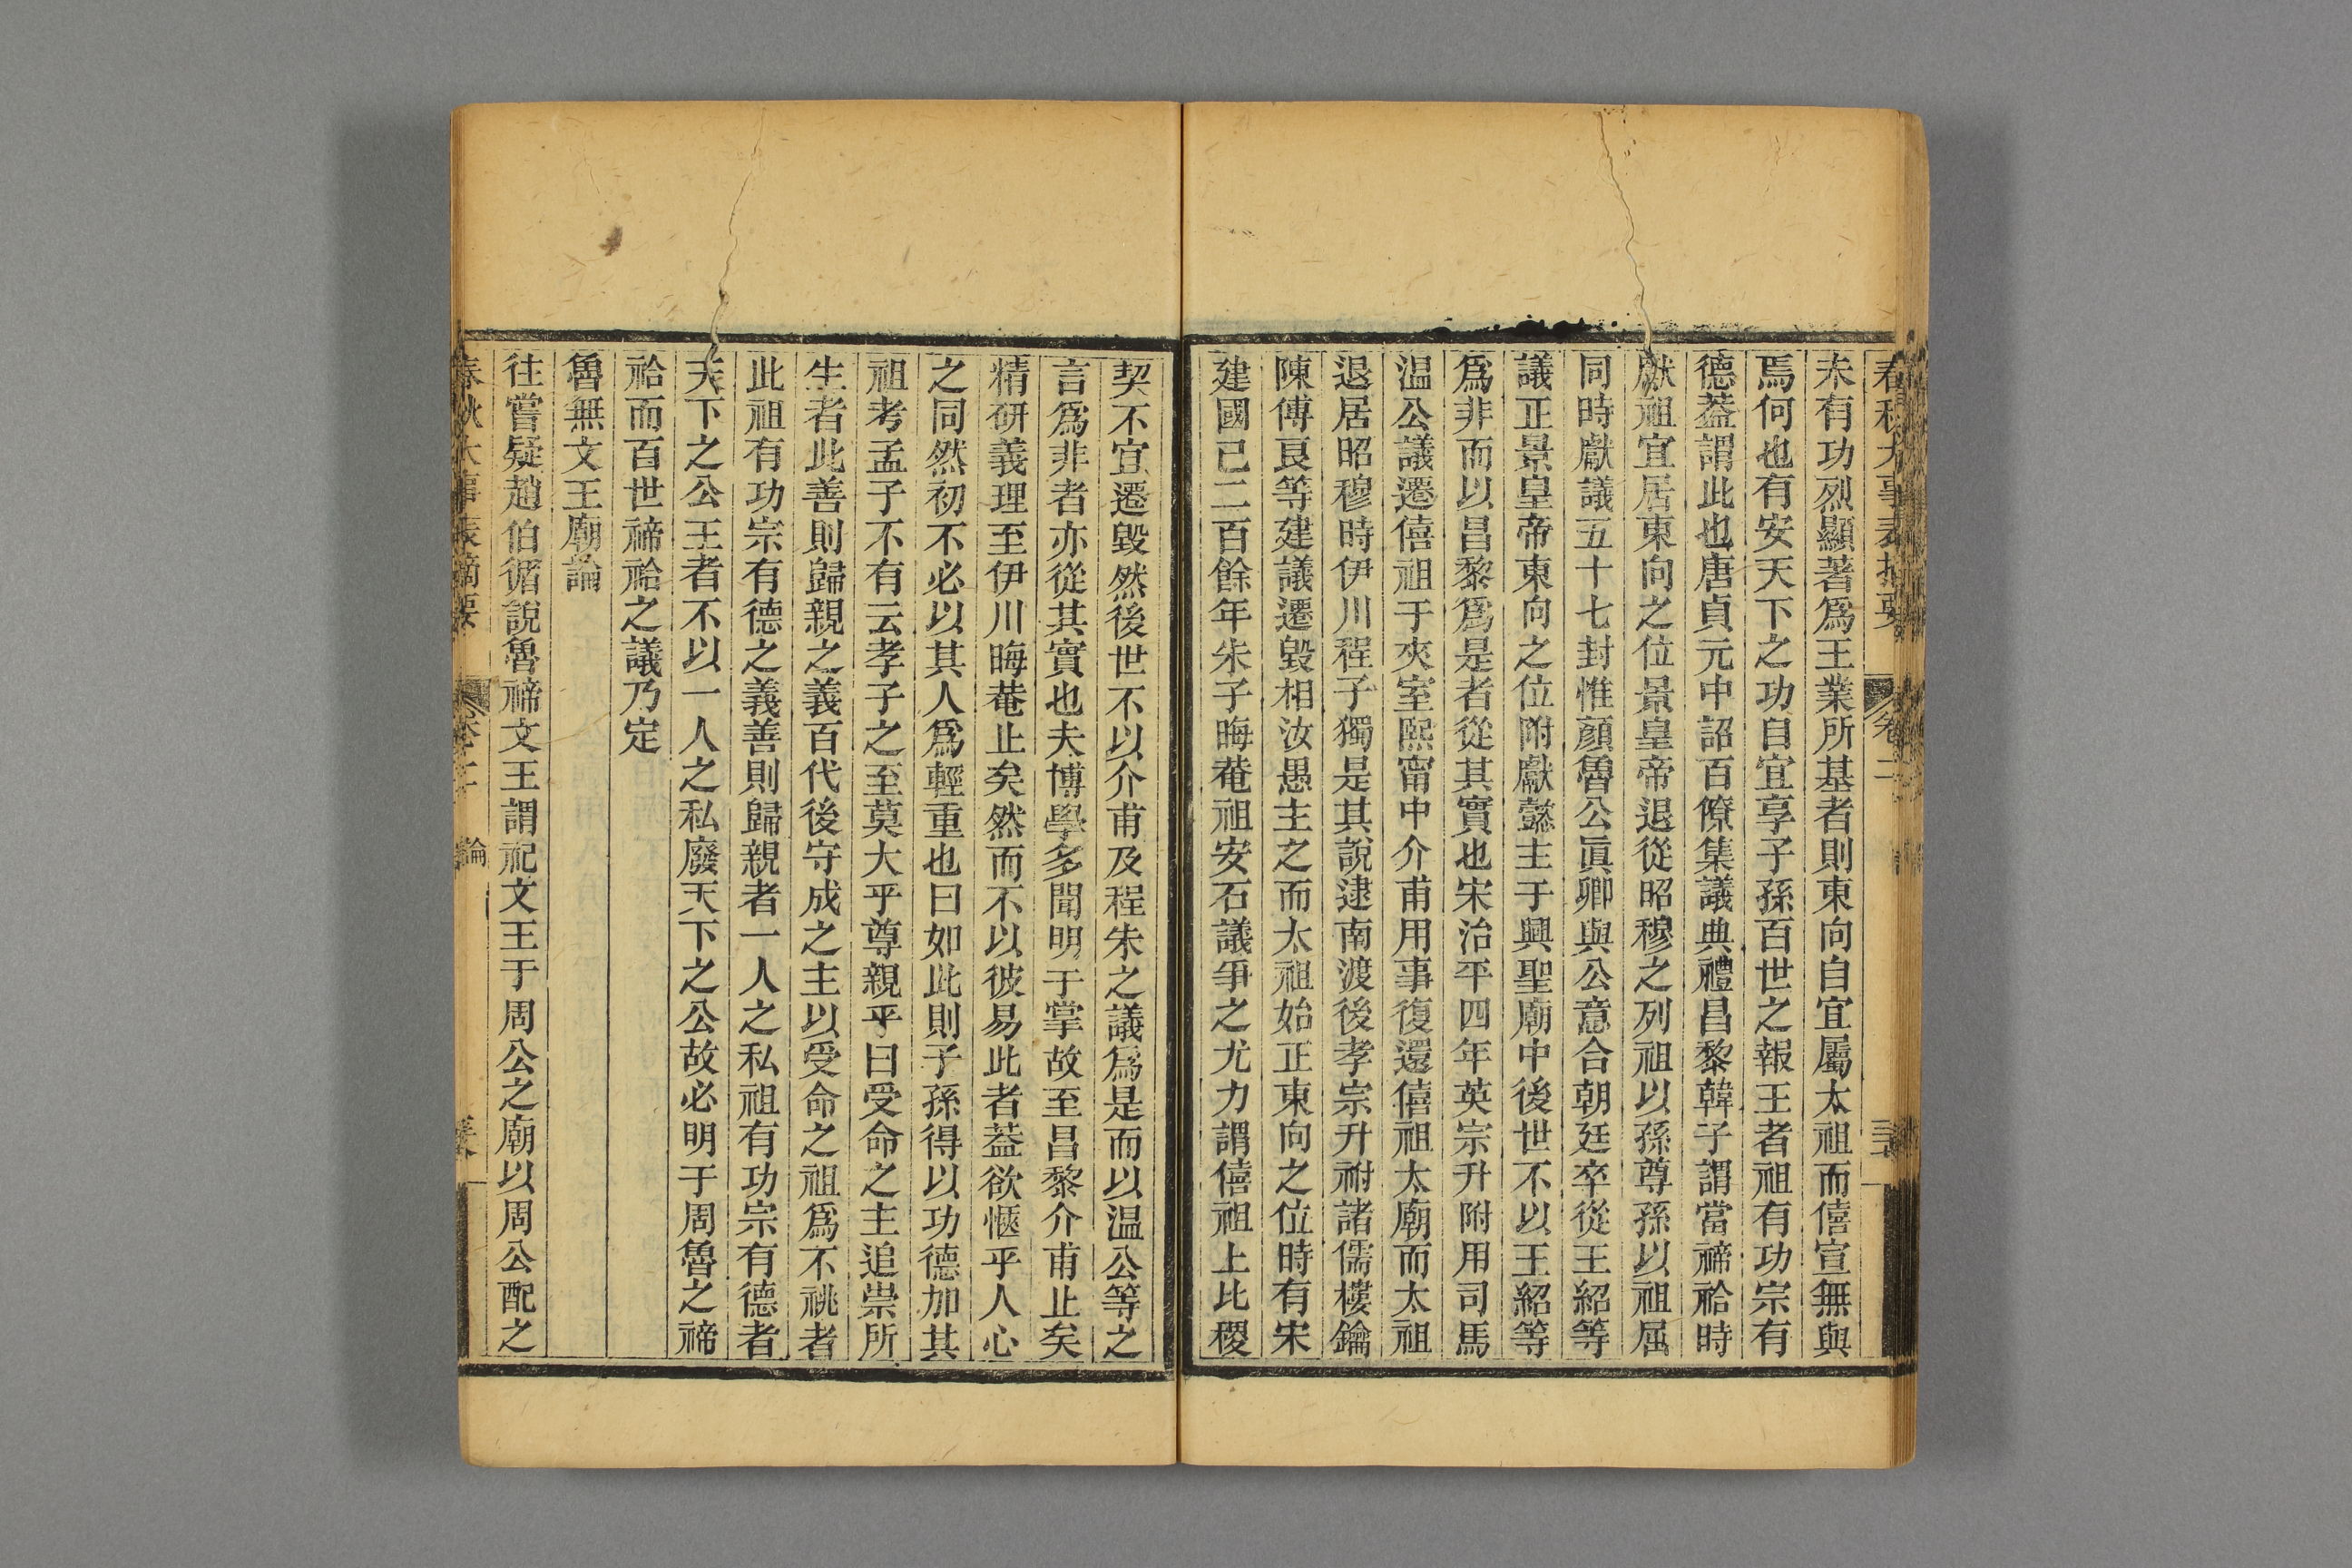 春秋大事表摘要 卷二
未有功烈顯著爲王業所基者則東向自宜屬太祖而僖宣無與
焉何也有安天下之功自宜享子孫百世之報王者祖有功宗有
德葢謂此也唐貞元中詔百僚集議典禮昌黎韓子謂當禘祫時
獻祖宜居東向之位景皇帝退從昭穆之列祖以孫尊孫以祖屈
同時獻議五十七封惟顏魯公眞卿與公意合朝廷卒從王紹等
議正景皇帝東向之位附獻懿主于興聖廟中後世不以王紹等
爲非而以昌黎爲是者從其實也宋治平四年英宗升附用司馬
温公議遷僖祖于夾室熙甯中介甫用事復還僖祖太廟而太祖
退居昭穆時伊川程子獨是其說逮南渡後孝宗升祔諸儒樓鑰
陳傅良等建議遷毀相汝愚主之而太祖始正東向之位時有宋
建國已二百餘年朱子晦菴祖安石議爭之尤力謂僖祖上比稷
契不宜遷毀然後世不以介甫及程朱之議爲是而以温公等之
言爲非者亦從其實也夫博學多聞明于掌故至昌黎介甫止矣
精研義理至伊川晦菴止矣然而不以彼易此者葢欲愜乎人心
之同然初不必以其人爲輕重也曰如此則子孫得以功德加其
祖考孟子不有云孝子之至莫大乎尊親乎曰受命之主追崇所
生者此善則歸親之義百代後守成之主以受命之祖爲不祧者
此祖有功宗有德之義善則歸親者一人之私祖有功宗有德者
天下之公王者不以一人之私廢天下之公故必明于周魯之禘
祫而百世禘祫之議乃定
魯無文王廟論
往嘗疑趙伯循說魯禘文王謂祀文王于周公之廟以周公配之
春秋大事表摘要 卷二 論